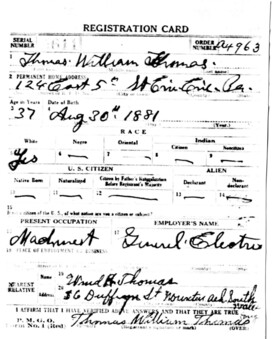 REGISTRATION CARD
SERIAL NUMBER
ORDER NUMBER A4963
1 Thomas William Thomas.
2 PERMANENT HOME ADDRESS:
124 East 5th St Erie Erie. Pa.
Age in Years Date of Birth
37 Aug 30th 1881
RACE
White Negro Oriental Indian
Citizen Noncitizen
5 Yes 6 7 8 9
U. S. CITIZEN ALIEN
Native Born Naturalized Citizen by Father's Naturalization Before Registrant's Majority Declarant Non-declarant
10 11 12 13 14
15 If not a citizen of the U. S., of what nation are you a citizen or subject?
PRESENT OCCUPATION EMPLOYER'S NAME
16 Machinist 17 General Electric
18 PLACE OF EMPLOYMENT OR BUSINESS:
NEAREST RELATIVE
Name 19 Thomas
Address 20 36 St South Wales
I AFFIRM THAT I HAVE VERIFIED ABOVE ANSWERS AND THAT THEY ARE TRUE
P. M. G. O.
Form No. 1 (Red) Thomas William Thomas
(OVER)